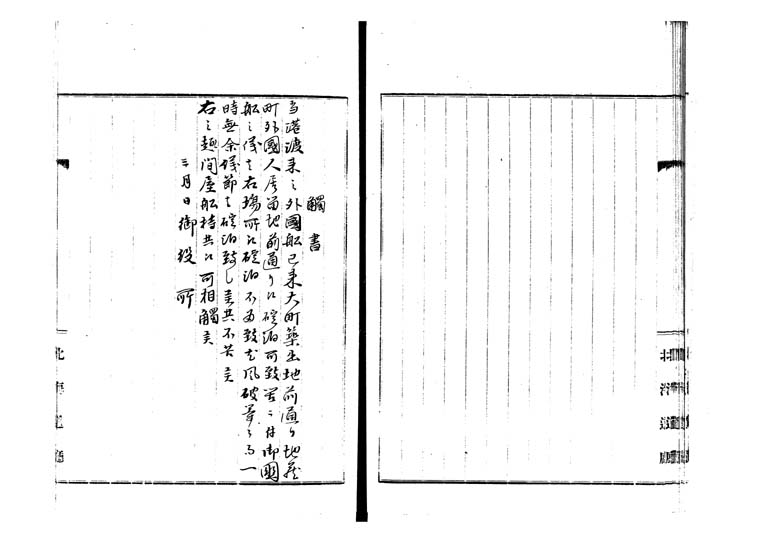 觸書
当港渡来之外國舩已来大町築出地前通り地蔵
町外國人居留地前通り江碇泊可致筈ニ付御國
舩之儀者右場所江碇泊不為致尤風破等ニ而一
時無余儀節者碇泊致し候共不苦候
右之趣問屋舩持共江可相觸候
三月日御役所